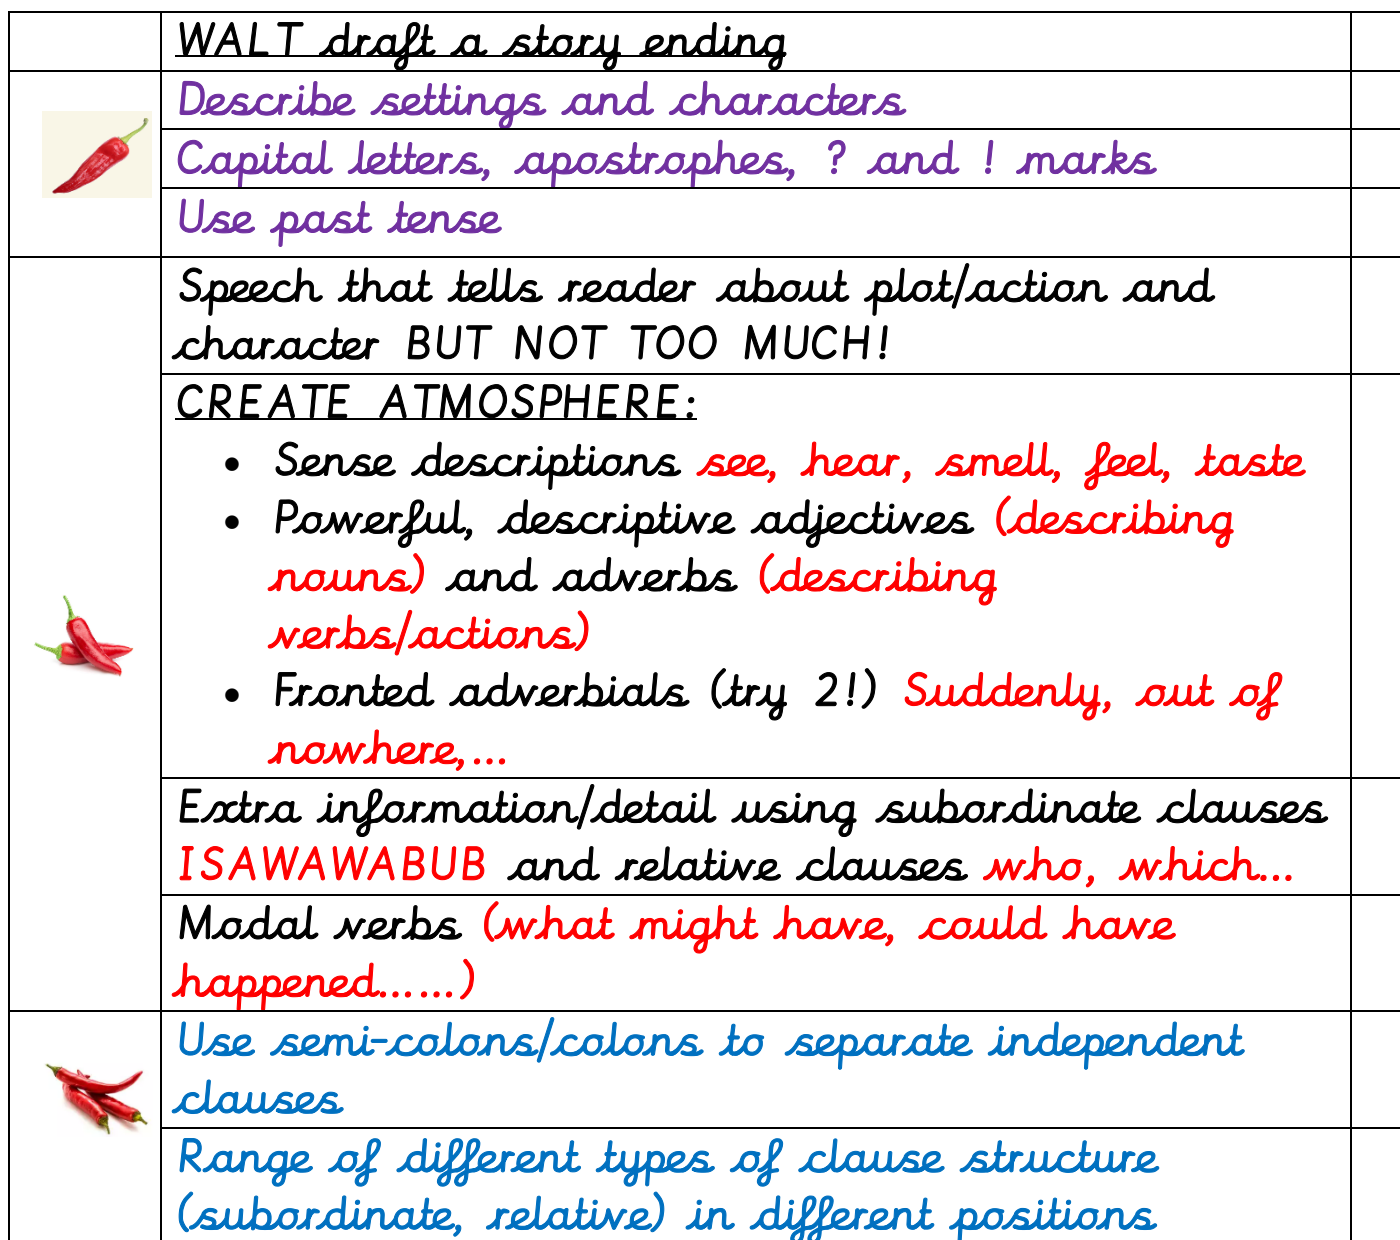 WALT draft a story ending
Describe settings and characters
Capital letters, apostrophes, ? and ! marks
Use past tense
Speech that tells reader about plot/action and
character BUT NOT TOO MUCH!
CREATE ATMOSPHERE:
• Sense descriptions see, hear, smell, feel, taste
• Powerful, descriptive adjectives (describing
nouns) and adverbs (describing
verbs/actions)
• Fronted adverbials (try 2!) Suddenly, out of
nowhere,...
Extra information/detail using subordinate clauses
ISAWAWABUB and relative clauses who, which...
Modal verbs (what might have, could have
happened......)
Use semi-colons/colons to separate independent
clauses
Range of different types of clause structure
(subordinate, relative) in different positions